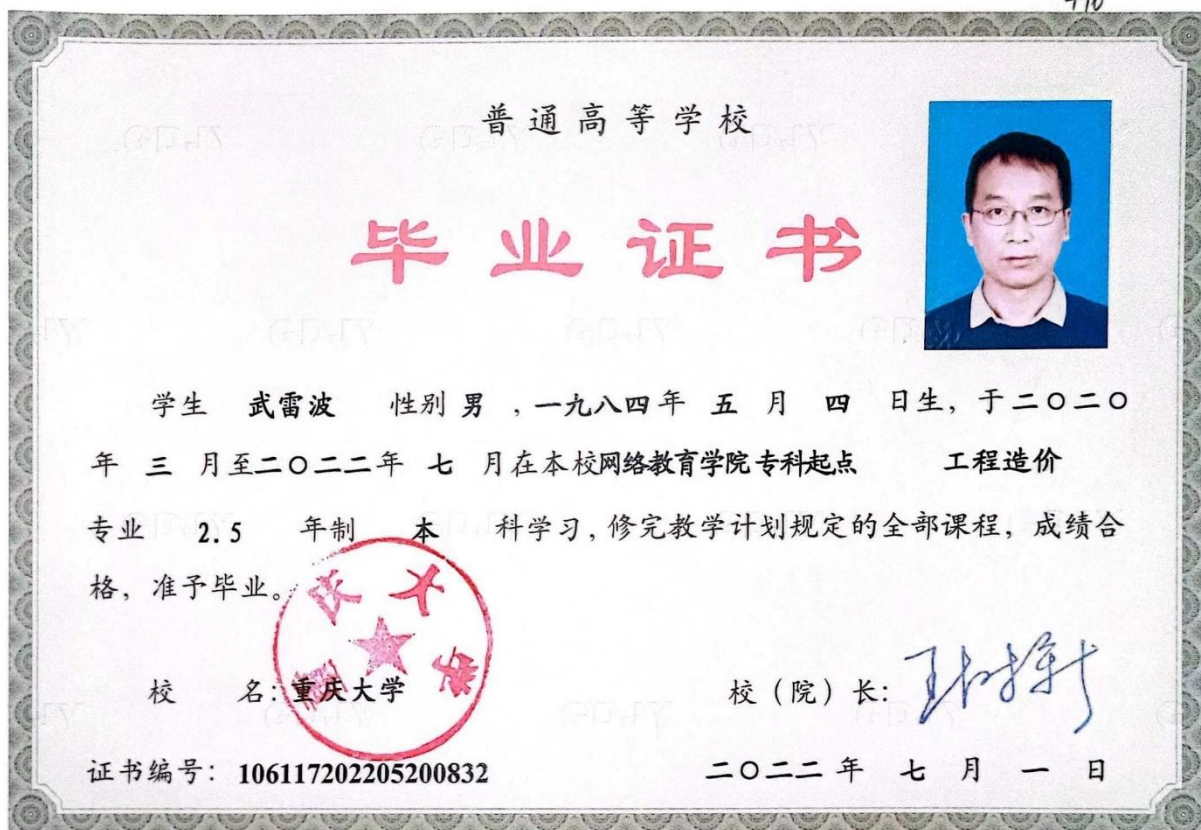 普通高等学校
毕业证书
学生 武雷波 性别 男 ,一九八四年 五 月 四 日生, 于二〇二〇
年 三 月至二〇二二年 七 月在本校网络教育学院专科起点 工程造价
专业 2.5 年制 本 科学习, 修完教学计划规定的全部课程, 成绩合
格, 准予毕业。
重庆大学
校 名: 重庆大学 校(院)长:
证书编号: 106117202205200832 二〇二二年 七 月 一 日